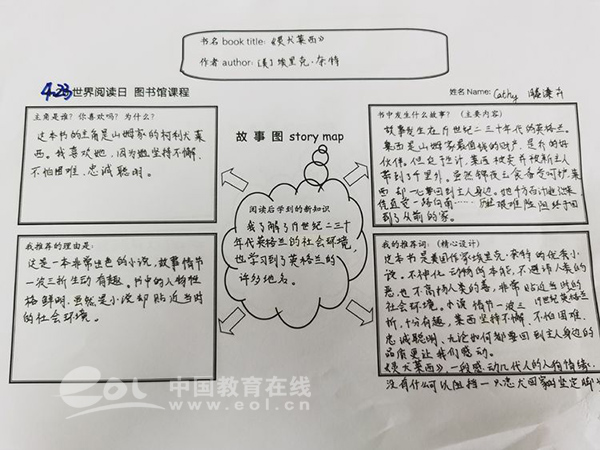 书名 book title: 《灵犬莱西》
作者 author: (美) 埃里克·奈特
4.23 世界阅读日 图书馆课程
姓名 Name: Cathy
主角是谁？你喜欢吗？为什么？
这本书的主角是山姆家的柯利犬莱
西。我喜欢她，因为她坚持不懈、
不怕困难、忠诚聪明。
故事图 story map
书中发生什么故事？（主要内容）
故事发生在廿世纪二三十年代的英格兰。
莱西是山姆家最值钱的财产，是乔的好
伙伴。但迫于生计，莱西被卖并被新主人
带到千里外。虽然锦衣玉食备受呵护，莱
西却一心要回到主人身边。她千方百计逃出来
凭直觉一路向南……历经艰难险阻终于回
到了从前的家。
阅读后学到的新知识
我了解了廿世纪二三十
年代英格兰的社会环境，
也学习到了英格兰的
许多地名。
我推荐的理由是：
这是一本非常出色的小说，故事情节
一波三折生动有趣。书中的人物性
格鲜明，虽然是小说却贴近当时
的社会环境。
我的推荐词：（精心设计）
这本书是美国作家埃里克·奈特的优秀小
说。不神化动物的本能，不避讳人类的
恶也不高扬人类的善，非常贴近当时的
社会环境。本该情节一波三 廿世纪英格兰
折，十分有趣，莱西坚持不懈、不怕困难、
忠诚聪明、无论如何都要回到主人身边的
品质更让我们感动。
《灵犬莱西》，一段感动几代人的人狗情缘，
没有什么可以阻挡一只忠犬回家的坚定脚步
eol 中国教育在线
www.eol.cn